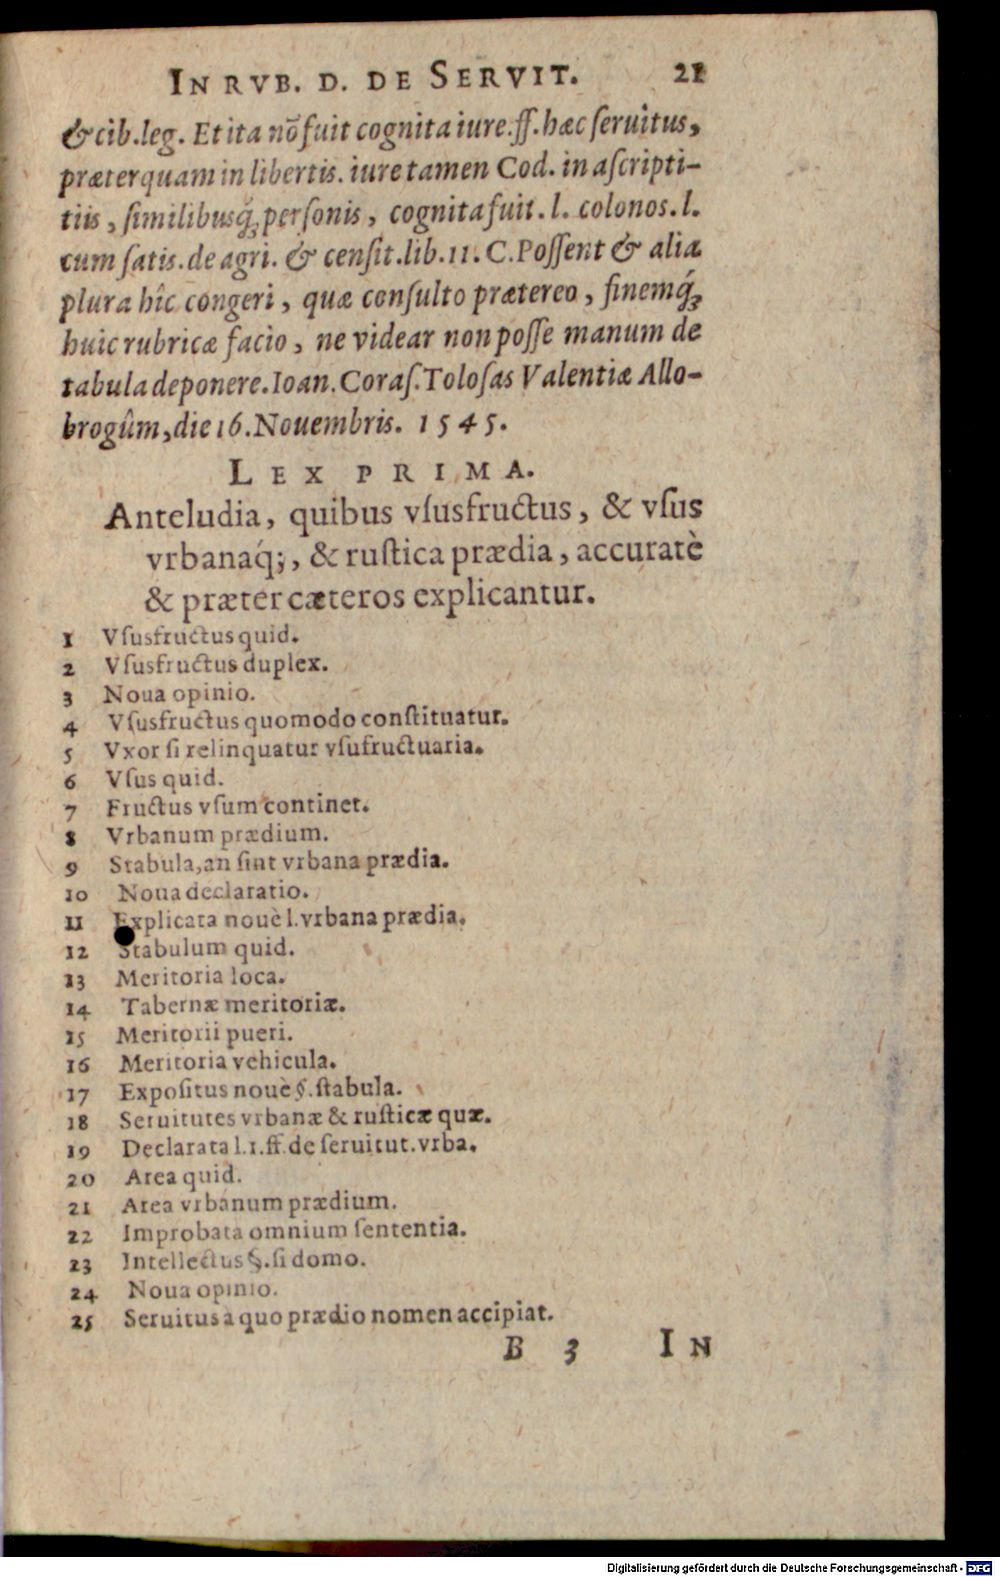 IN RVB. D. DE SERVIT. 21
& cib. leg. Et ita nõ fuit cognita iure. ff. hæc seruitus,
præterquam in libertis. iure tamen Cod. in ascripti-
tiis, similibusq́; personis, cognita fuit. l. colonos. l.
cum satis. de agri. & censit. lib. 11. C. Possent & alia
plura hîc congeri, quæ consulto prætereo, finemq́;
huic rubricæ facio, ne videar non posse manum de
tabula deponere. Ioan. Coras. Tolosas Valentiæ Allo-
brogûm, die 16. Nouembris. 1545.
LEX PRIMA.
Anteludia, quibus vsusfructus, & vsus
vrbanaq́;, & rustica prædia, accuratè
& præter cæteros explicantur.
1 Vsusfructus quid.
2 Vsusfructus duplex.
3 Noua opinio.
4 Vsusfructus quomodo constituatur.
5 Vxor si relinquatur vsufructuaria.
6 Vsus quid.
7 Fructus vsum continet.
8 Vrbanum prædium.
9 Stabula, an sint vrbana prædia.
10 Noua declaratio.
11 Explicata nouè l. vrbana prædia.
12 Stabulum quid.
13 Meritoria loca.
14 Tabernæ meritoriæ.
15 Meritorii pueri.
16 Meritoria vehicula.
17 Expositus nouè §. stabula.
18 Seruitutes vrbanæ & rusticæ quæ.
19 Declarata l. 1. ff. de seruitut. vrba.
20 Area quid.
21 Area vrbanum prædium.
22 Improbata omnium sententia.
23 Intellectus §. si domo.
24 Noua opinio.
25 Seruitus à quo prædio nomen accipiat.
B 3 IN
Digitalisierung gefördert durch die Deutsche Forschungsgemeinschaft - DFG